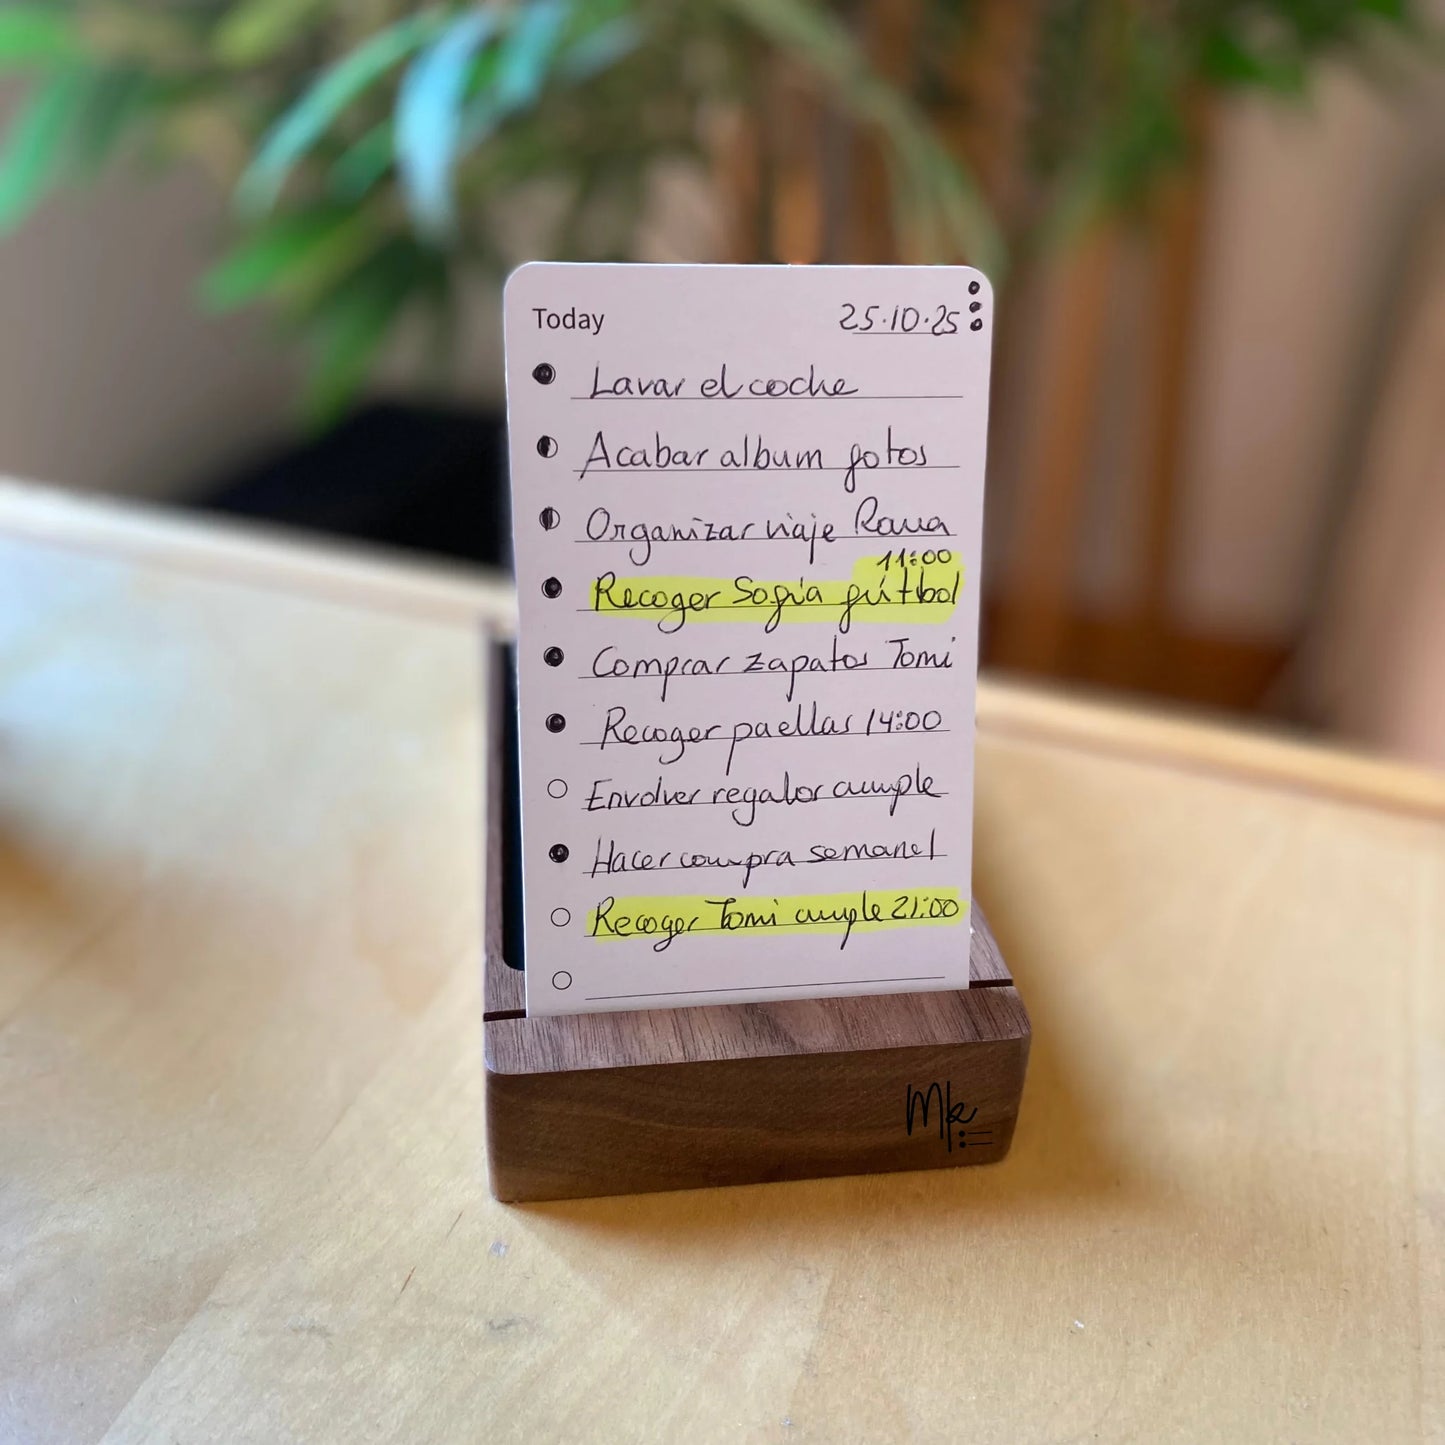 Today 25·10·25
Lavar el coche
Acabar album fotos
Organizar viaje Roma
11:00
Recoger Sofía fútbol
Comprar zapatos Tomi
Recoger paellas 14:00
Envolver regalos cumple
Hacer compra semanal
Recoger Tomi cumple 21:00
Mk